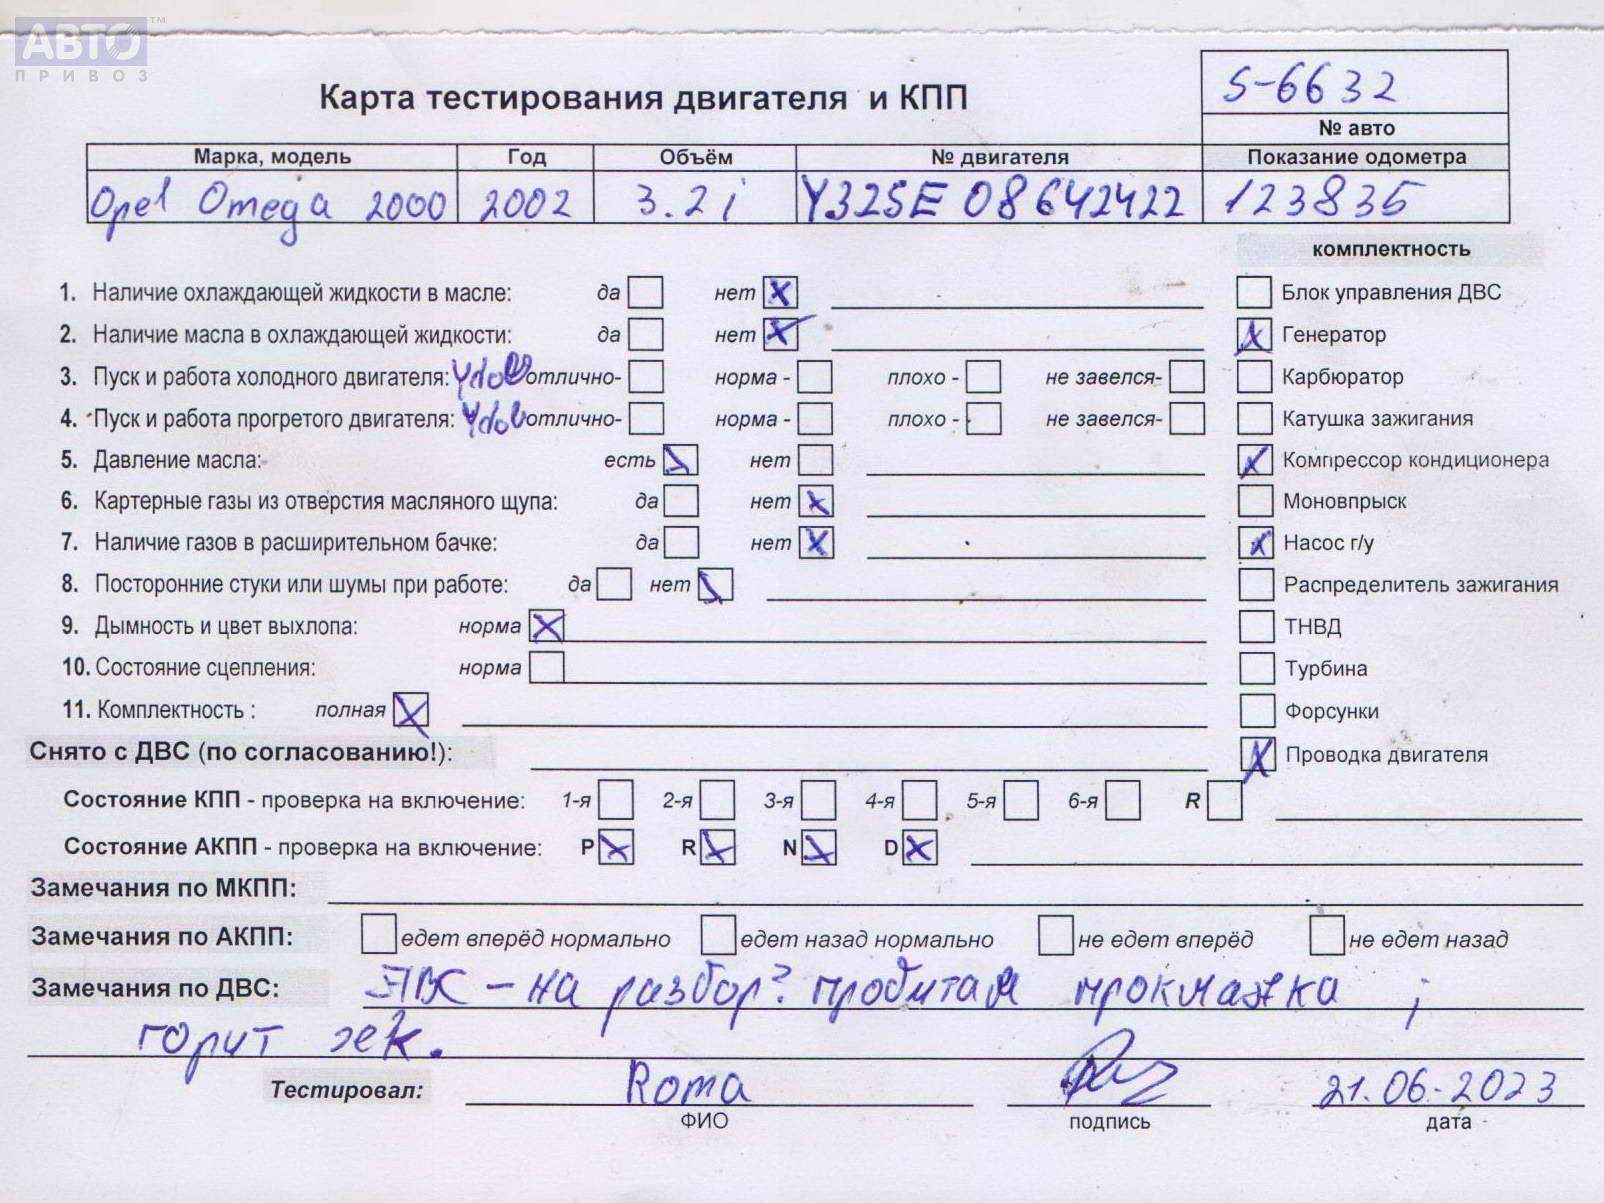 АВТО™
ПРИВОЗ
Карта тестирования двигателя и КПП
S-6632
№ авто
Марка, модель Год Объём № двигателя Показание одометра
Opel Omega 2000 2002 3.2i Y32SE 08642422 123835
комплектность
1. Наличие охлаждающей жидкости в масле: да нет X Блок управления ДВС
2. Наличие масла в охлаждающей жидкости: да нет X X Генератор
3. Пуск и работа холодного двигателя: Удов отлично- норма - плохо - не завелся- Карбюратор
4. Пуск и работа прогретого двигателя: Удов отлично- норма - плохо - не завелся- Катушка зажигания
5. Давление масла: есть X нет X Компрессор кондиционера
6. Картерные газы из отверстия масляного щупа: да нет X Моновпрыск
7. Наличие газов в расширительном бачке: да нет X X Насос г/у
8. Посторонние стуки или шумы при работе: да нет X Распределитель зажигания
9. Дымность и цвет выхлопа: норма X ТНВД
10. Состояние сцепления: норма Турбина
11. Комплектность : полная X Форсунки
Снято с ДВС (по согласованию!): X Проводка двигателя
Состояние КПП - проверка на включение: 1-я 2-я 3-я 4-я 5-я 6-я R
Состояние АКПП - проверка на включение: P X R X N X D X
Замечания по МКПП:
Замечания по АКПП: едет вперёд нормально едет назад нормально не едет вперёд не едет назад
Замечания по ДВС: ДВС - на разбор? пробитая прокладка ;
горит чек.
Тестировал: Roma 21.06.2023
ФИО подпись дата